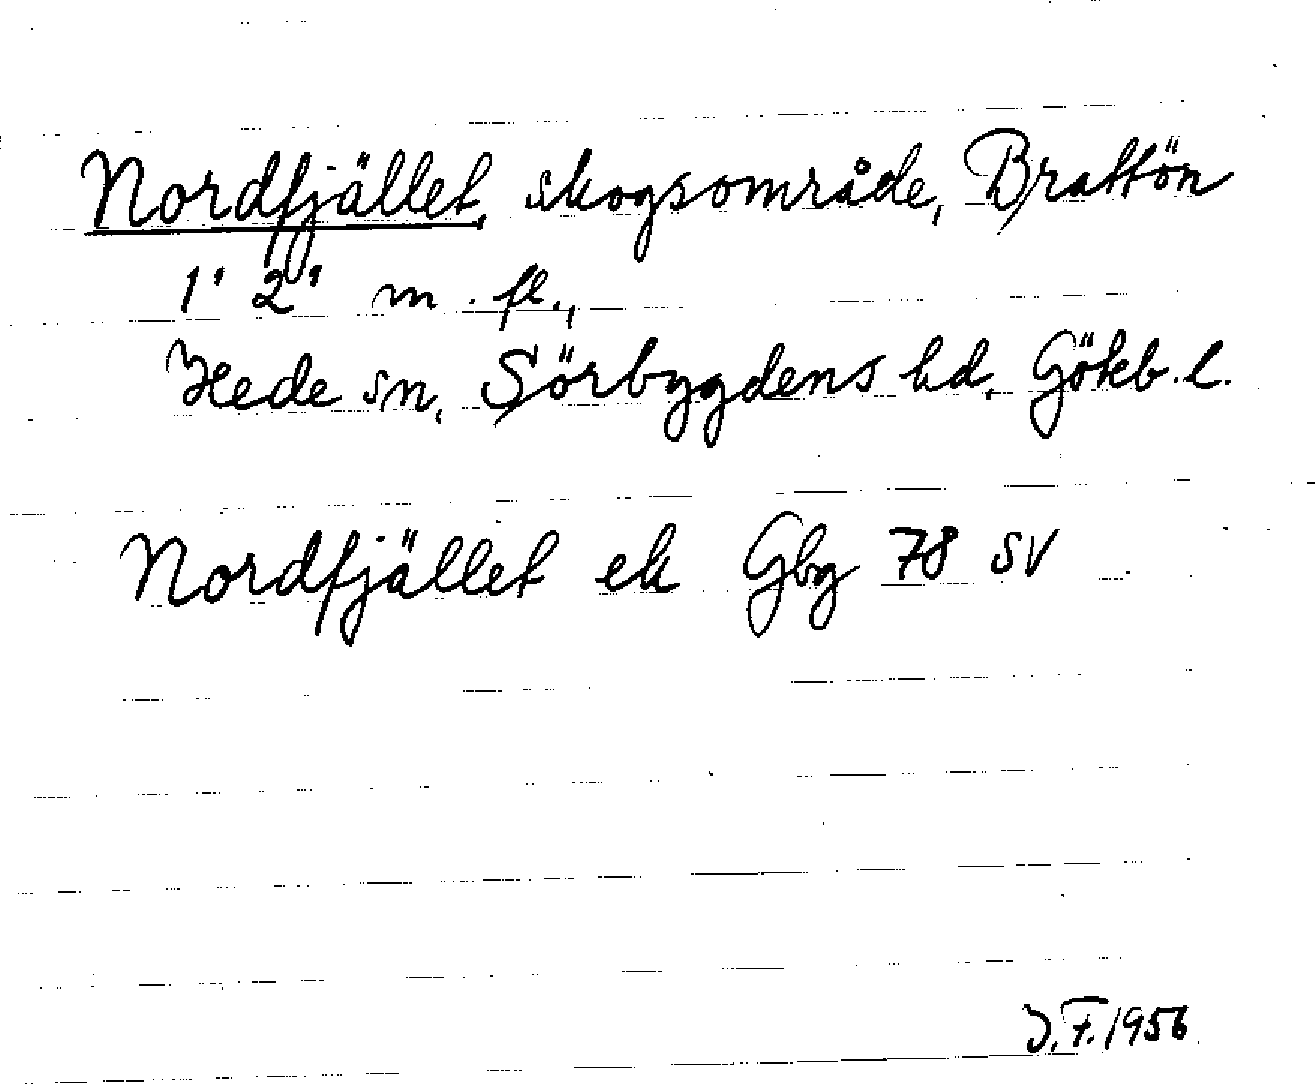 Nordfjället, skogsområde, Brattön
1" 2" m. fl.,
Hede sn, Sörbygdens hd, Götebː l.
Nordfjället ek Gbg 78 SV
J.F. 1956